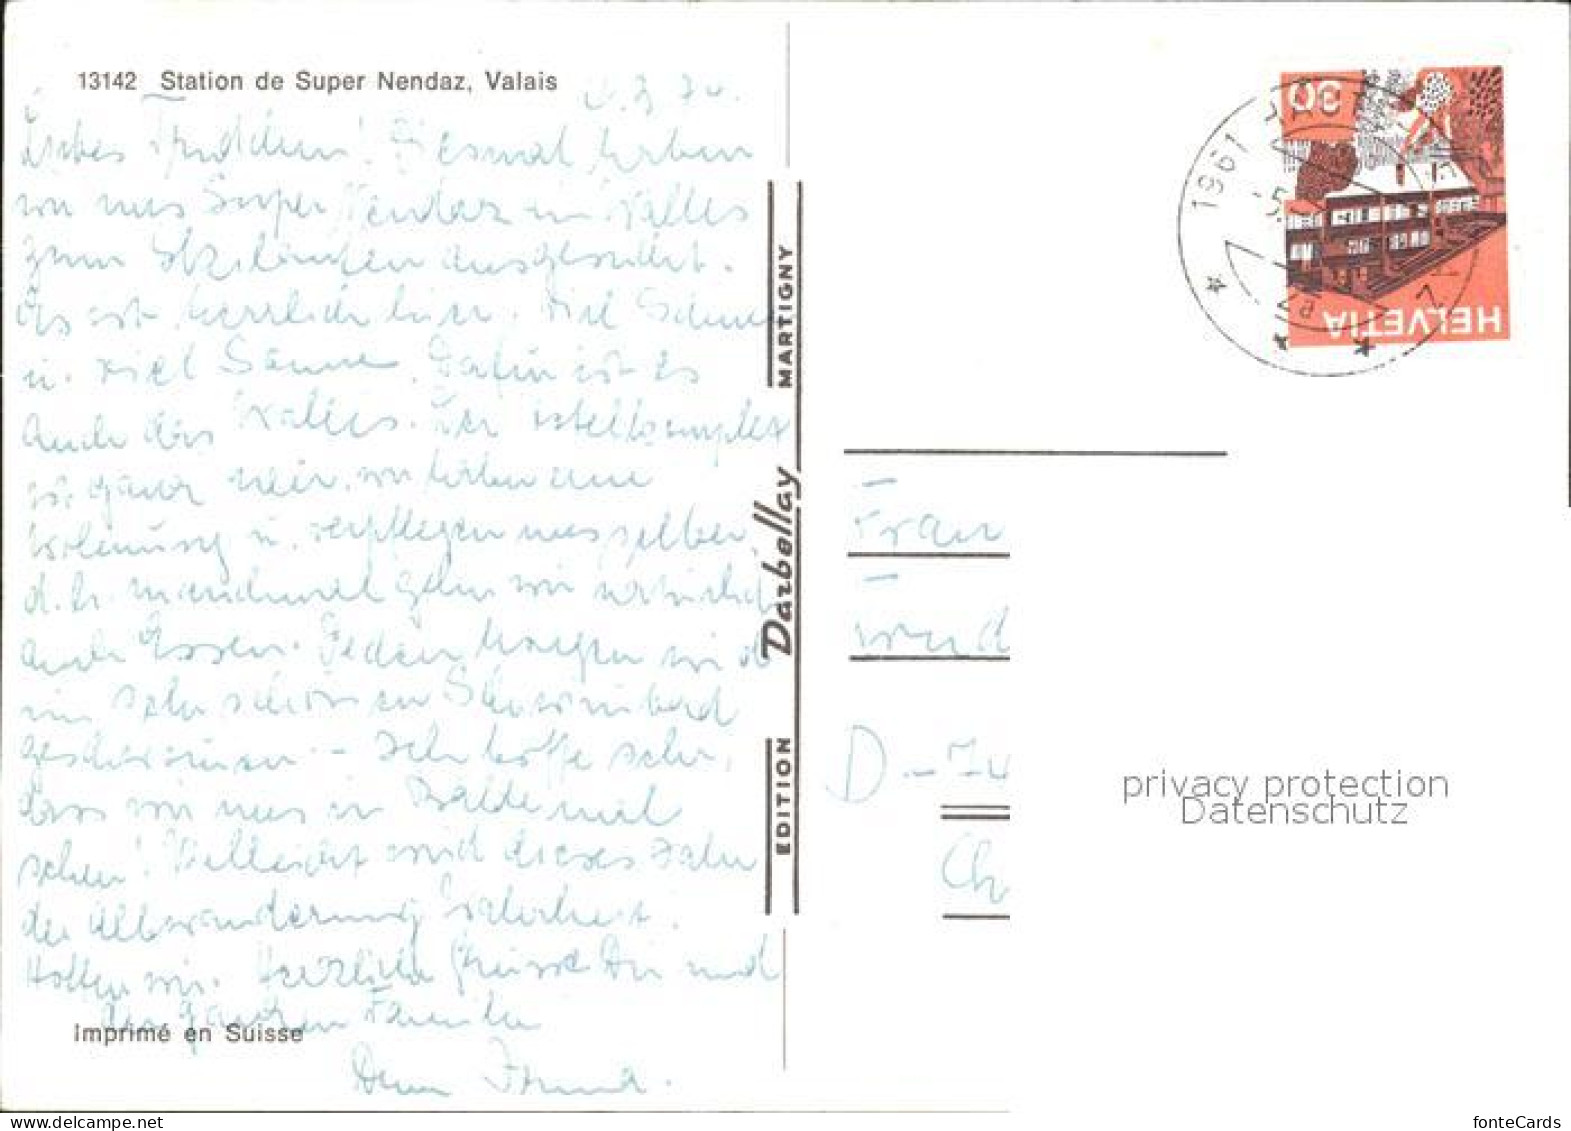 13142 Station de Super Nendaz, Valais
Liebes Trudchen! Diesmal haben
wir uns Super Nendaz im Wallis
zum Skilaufen ausgesucht.
Es ist herrlich hier. Viel Schnee
u. viel Sonne. Dafür ist es
auch das Wallis. Der
ist ganz neu, wir haben eine
Wohnung u. verpflegen uns selber,
d.h. manchmal gehen wir natürlich
auch Essen. Jeden Morgen wird
im sehr schönen Schwimmbad
geschwommen – Ich hoffe sehr,
dass wir uns in Bälde mal
sehen! Vielleicht wird dieses Jahr
die Albwanderung Wahrheit.
Hoffen wir. Herzliche Grüsse Dir und
der ganzen Familie
Imprimé en Suisse
Dein
EDITION Darbellay MARTIGNY
1961
30
HELVETIA
Frau
D-74
Ch
privacy protection
Datenschutz
fonteCards